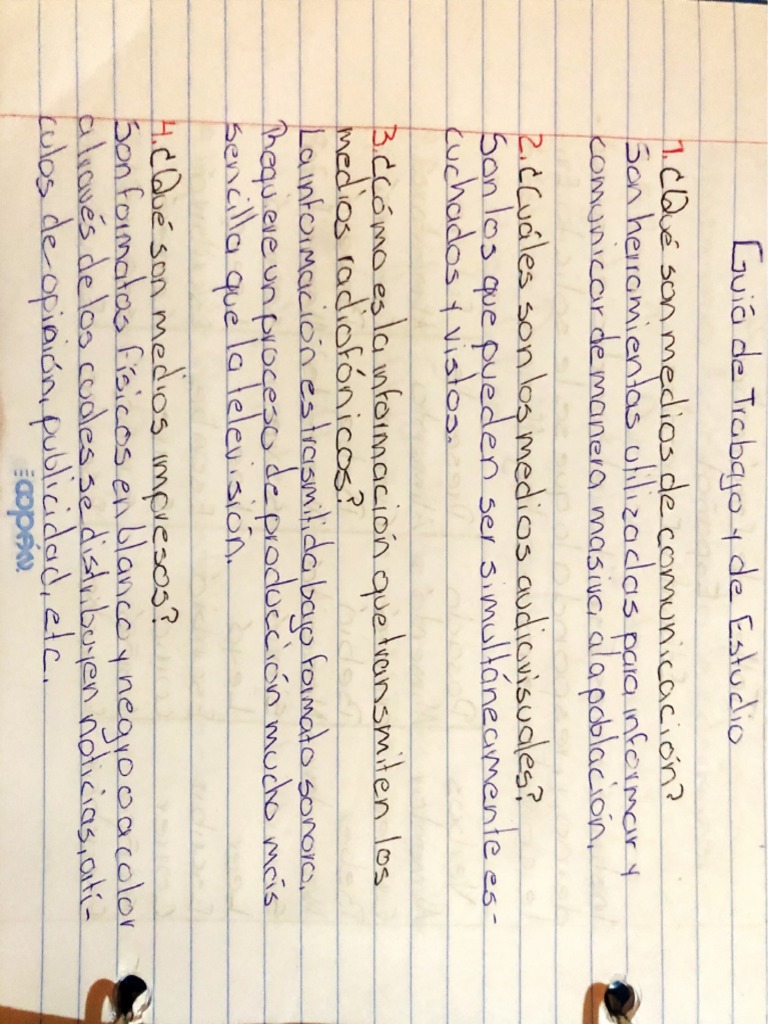 Guía de Trabajo y de Estudio
1. ¿Qué son medios de comunicación?
Son herramientas utilizadas para informar y
comunicar de manera masiva a la población.
2. ¿Cuáles son los medios audiovisuales?
Son los que pueden ser simultáneamente es-
cuchados y vistos.
3. ¿Cómo es la información que transmiten los
medios radiofónicos?
La información es trasmitida bajo formato sonoro.
Requiere un proceso de producción mucho más
sencilla que la televisión.
4. ¿Qué son medios impresos?
Son formatos físicos en blanco y negro o a color
a través de los cuales se distribuyen noticias, artí-
culos de opinión, publicidad, etc.
copán